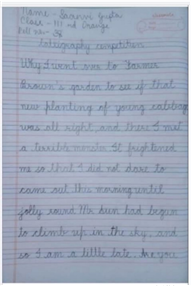 Name - Saanvi Gupta
Class - III rd Orange
Roll No - 36
Calligraphy competition
Why I went over to Farmer
Brown's garden to see if that
new planting of young cabbage
was all right and there I met
a terrible monster. It frightened
me so that I did not dare to
come out this morning until
jolly round Mr. Sun had begun
to climb up in the sky, and
so I am a little late. Are you